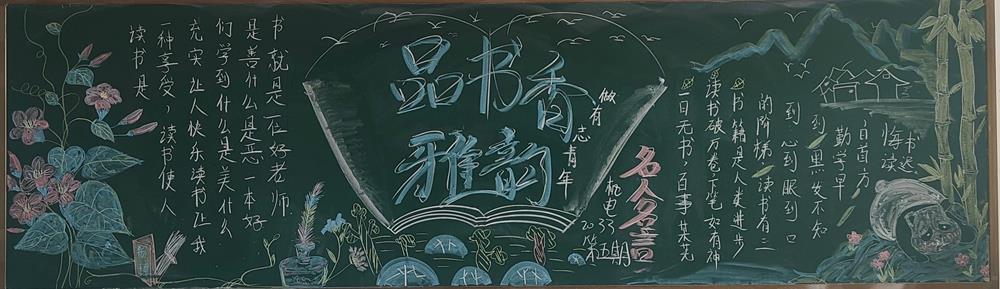 读书是
一种享受，读书使人
充实让人快乐读书让我
们学到什么是美什么
是善什么是恶一本好
书就是一位好老师
品书香
雅韵
做有志青年
机电
2033
第五期
名人名言
一日无书，百事荒芜
读书破万卷下笔如有神
书籍是人类进步
的阶梯 读书有三
到 心到眼到口
到 黑发不知
勤学早
白首方
悔读
书迟